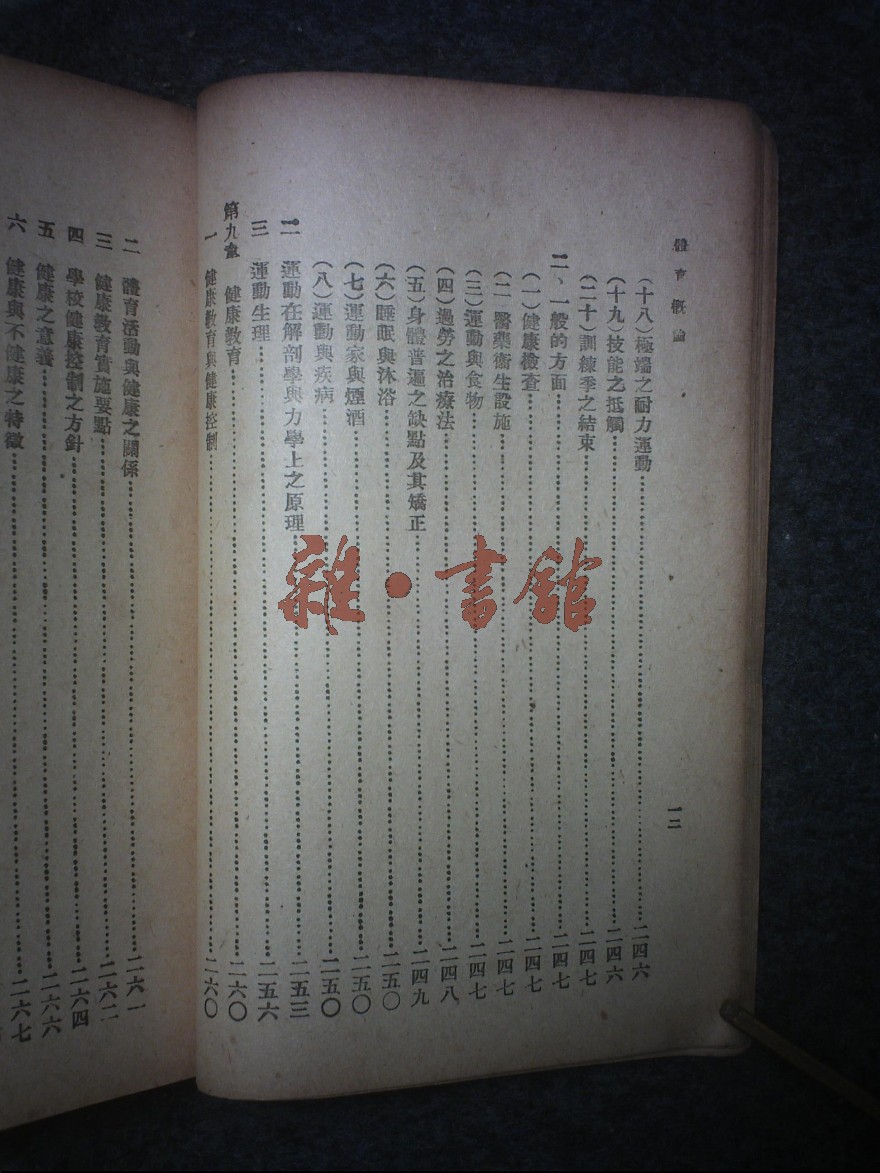 體育概論
一二
（十八）極端之耐力運動……二四六
（十九）技能之抵觸……二四六
（二十）訓練季之結束……二四七
二、一般的方面……二四七
（一）健康檢查……二四七
（二）醫藥衞生設施……二四七
（三）運動與食物……二四七
（四）過勞之治療法……二四八
（五）身體普遍之缺點及其矯正……二四九
（六）睡眠與沐浴……二五〇
（七）運動家與煙酒……二五〇
（八）運動與疾病……二五〇
二　運動在解剖學與力學上之原理……二五三
三　運動生理……二五六
第九章　健康教育……二六〇
一　健康教育與健康控制……二六〇
二　體育活動與健康之關係……二六一
三　健康教育實施要點……二六二
四　學校健康控制之方針……二六四
五　健康之意義……二六六
六　健康與不健康之特徵……二六七
雜·書館